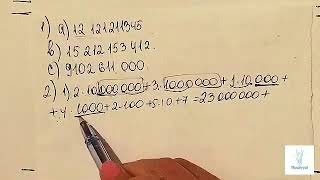 1) a) 12 121 211 345
b) 15 212 153 412.
c) 9102 611 000.
2) 1) 2·10 000 000 + 3·1 000 000 + 1·10 000 +
+ 4·1000 + 2·100 + 5·10 + 7 = 23 000 000 +